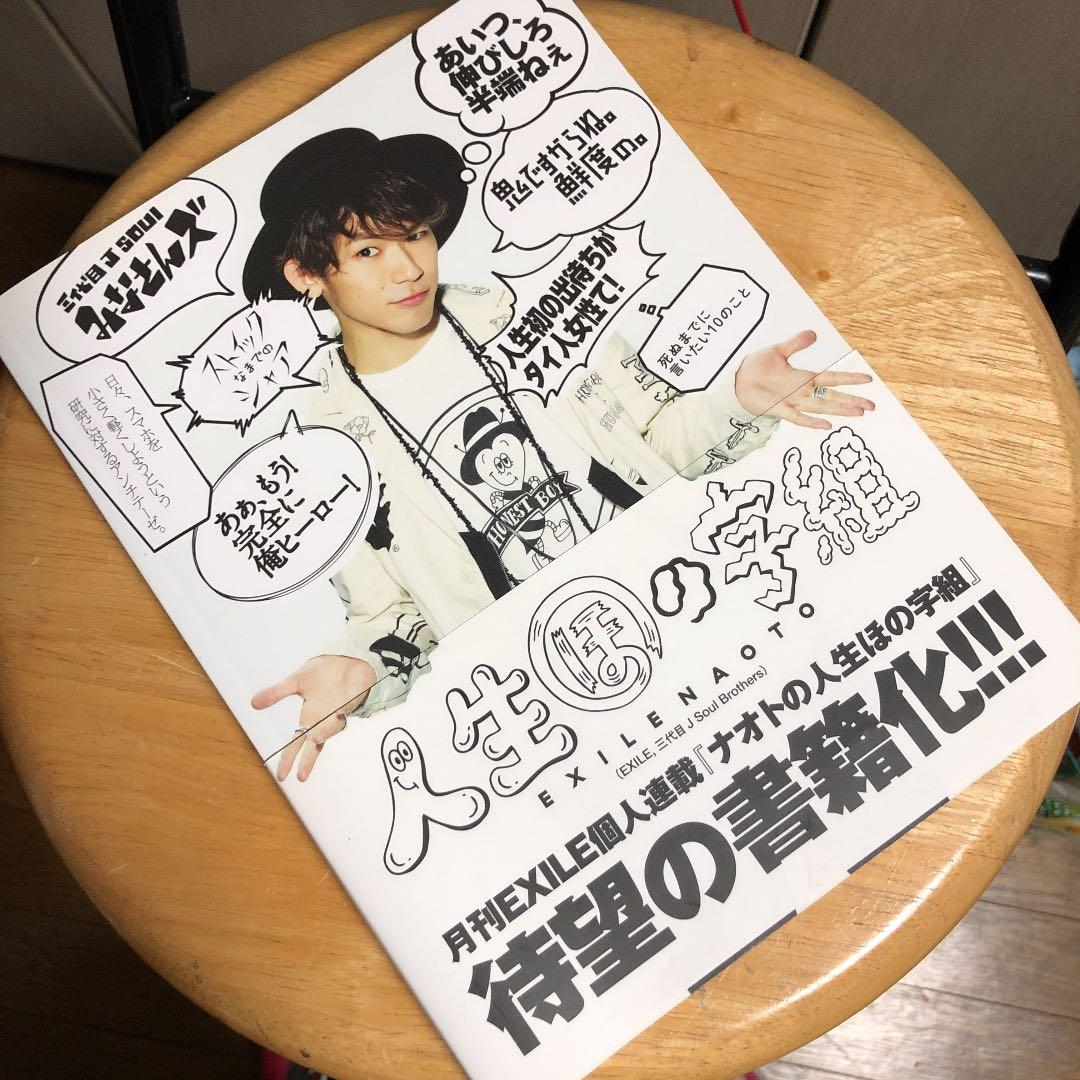 あいつ、
伸びしろ
半端ねぇ
鬼んですからね。
鮮度の。
三代目 J SOUL
みなさんズ
ストイック
なまでの
シャア
人生初の出待ちが
タイ人女性て!
死ぬまでに
言いたい10のこと
日々、スマホを
小さく軽くしようという
研究に対するアンチテーゼ。
ああ、もう!
完全に
俺ヒーロー!
HONEST BOY
人生ほの字組
EXILE NAOTO
(EXILE, 三代目 J Soul Brothers)
月刊EXILE個人連載『ナオトの人生ほの字組』
待望の書籍化!!!